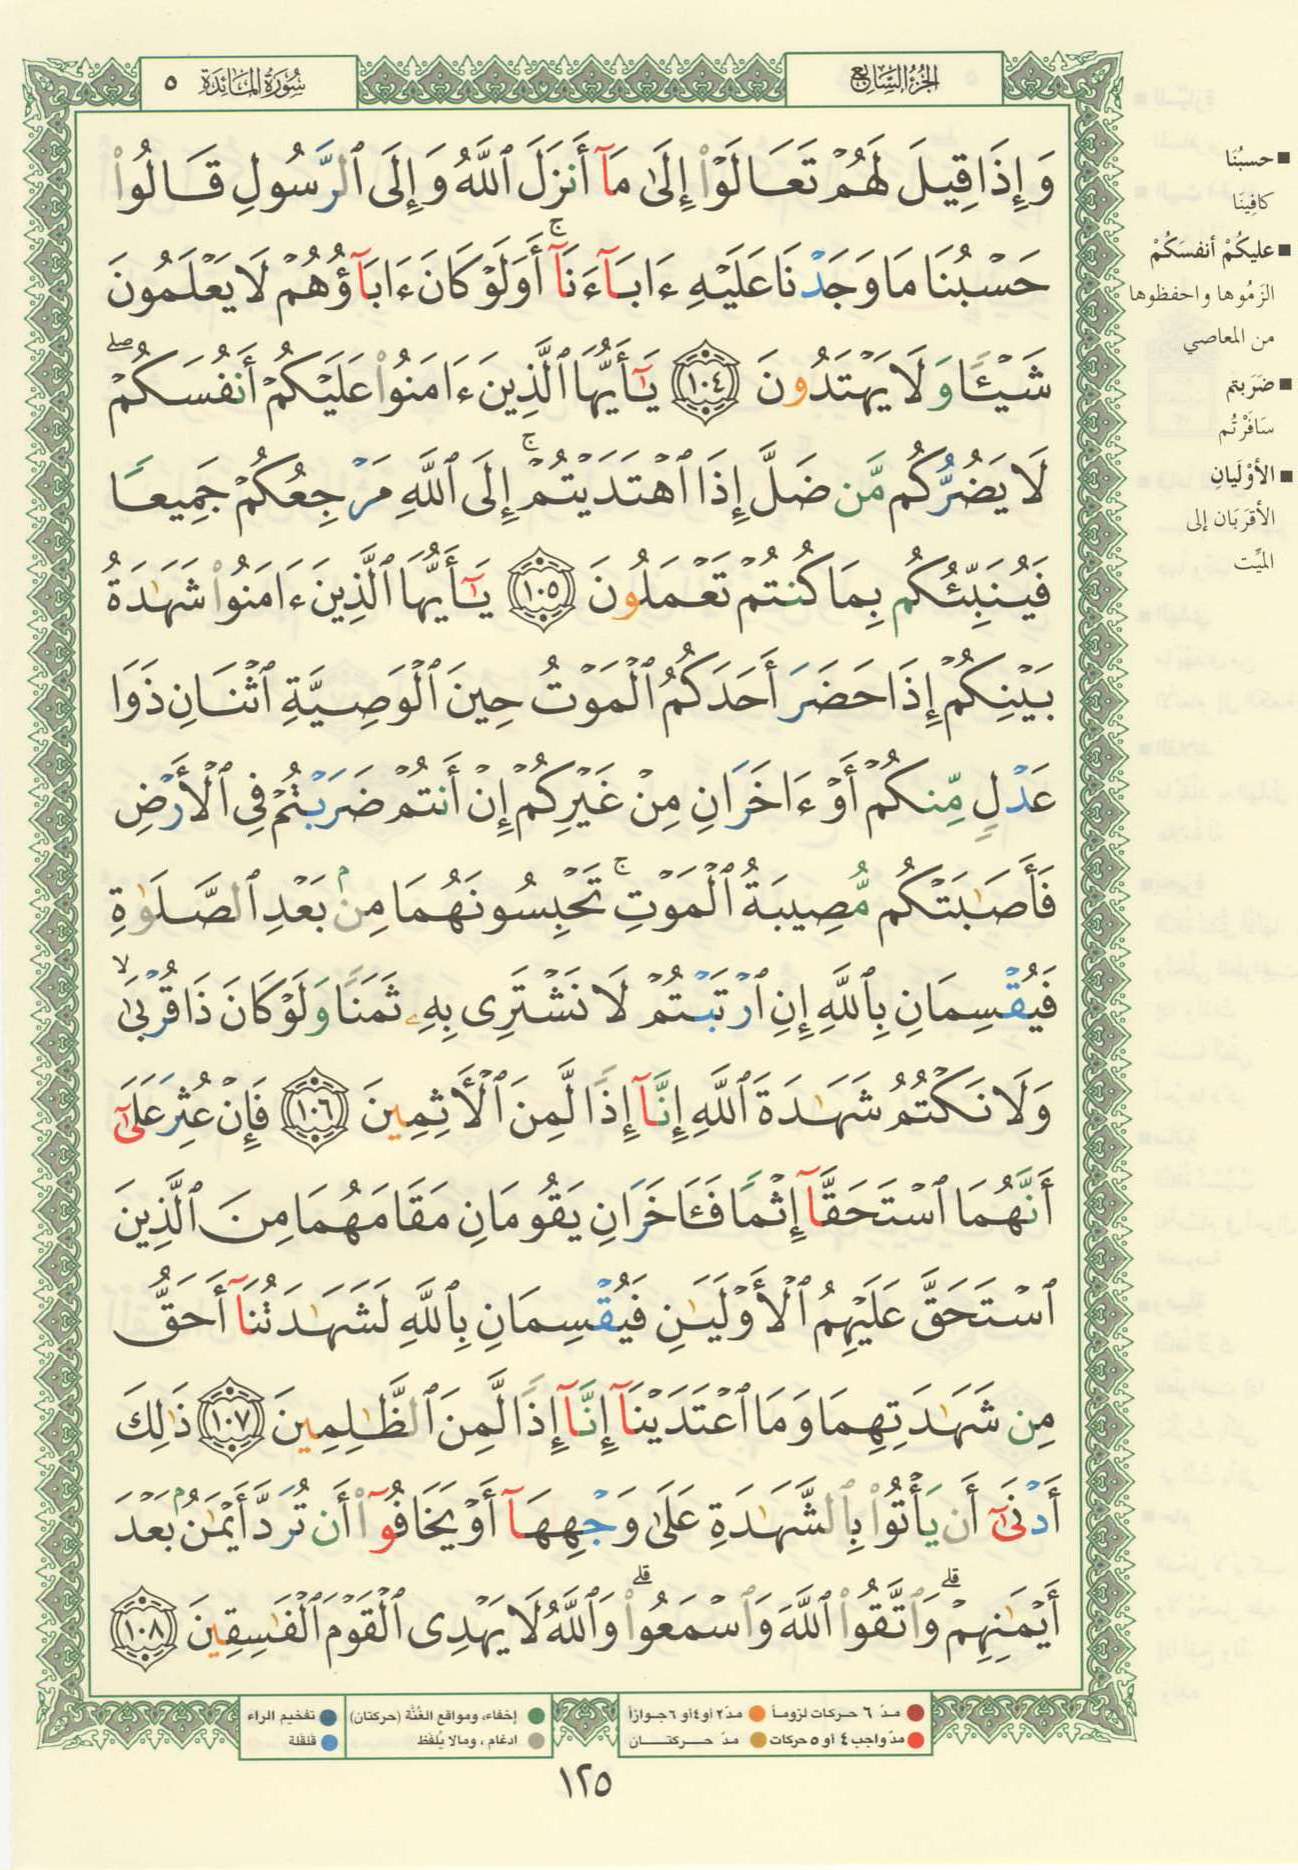 الجزء السابع
سورة المائدة ٥
وَإِذَا قِيلَ لَهُمْ تَعَالَوْا۟ إِلَىٰ مَآ أَنزَلَ ٱللَّهُ وَإِلَى ٱلرَّسُولِ قَالُوا۟
حَسْبُنَا مَا وَجَدْنَا عَلَيْهِ ءَابَآءَنَآ ۚ أَوَلَوْ كَانَ ءَابَآؤُهُمْ لَا يَعْلَمُونَ
شَيْـًٔا وَلَا يَهْتَدُونَ ١٠٤ يَـٰٓأَيُّهَا ٱلَّذِينَ ءَامَنُوا۟ عَلَيْكُمْ أَنفُسَكُمْ ۖ
لَا يَضُرُّكُم مَّن ضَلَّ إِذَا ٱهْتَدَيْتُمْ ۚ إِلَى ٱللَّهِ مَرْجِعُكُمْ جَمِيعًا
فَيُنَبِّئُكُم بِمَا كُنتُمْ تَعْمَلُونَ ١٠٥ يَـٰٓأَيُّهَا ٱلَّذِينَ ءَامَنُوا۟ شَهَـٰدَةُ
بَيْنِكُمْ إِذَا حَضَرَ أَحَدَكُمُ ٱلْمَوْتُ حِينَ ٱلْوَصِيَّةِ ٱثْنَانِ ذَوَا
عَدْلٍ مِّنكُمْ أَوْ ءَاخَرَانِ مِنْ غَيْرِكُمْ إِنْ أَنتُمْ ضَرَبْتُمْ فِى ٱلْأَرْضِ
فَأَصَـٰبَتْكُم مُّصِيبَةُ ٱلْمَوْتِ ۚ تَحْبِسُونَهُمَا مِنۢ بَعْدِ ٱلصَّلَوٰةِ
فَيُقْسِمَانِ بِٱللَّهِ إِنِ ٱرْتَبْتُمْ لَا نَشْتَرِى بِهِۦ ثَمَنًا وَلَوْ كَانَ ذَا قُرْبَىٰ ۙ
وَلَا نَكْتُمُ شَهَـٰدَةَ ٱللَّهِ إِنَّآ إِذًا لَّمِنَ ٱلْـَٔاثِمِينَ ١٠٦ فَإِنْ عُثِرَ عَلَىٰٓ
أَنَّهُمَا ٱسْتَحَقَّآ إِثْمًا فَـَٔاخَرَانِ يَقُومَانِ مَقَامَهُمَا مِنَ ٱلَّذِينَ
ٱسْتَحَقَّ عَلَيْهِمُ ٱلْأَوْلَيَـٰنِ فَيُقْسِمَانِ بِٱللَّهِ لَشَهَـٰدَتُنَآ أَحَقُّ
مِن شَهَـٰدَتِهِمَا وَمَا ٱعْتَدَيْنَآ إِنَّآ إِذًا لَّمِنَ ٱلظَّـٰلِمِينَ ١٠٧ ذَٰلِكَ
أَدْنَىٰٓ أَن يَأْتُوا۟ بِٱلشَّهَـٰدَةِ عَلَىٰ وَجْهِهَآ أَوْ يَخَافُوٓا۟ أَن تُرَدَّ أَيْمَـٰنٌۢ بَعْدَ
أَيْمَـٰنِهِمْ ۗ وَٱتَّقُوا۟ ٱللَّهَ وَٱسْمَعُوا۟ ۗ وَٱللَّهُ لَا يَهْدِى ٱلْقَوْمَ ٱلْفَـٰسِقِينَ ١٠٨
■ حسبُنَا
كافِينَا
■ عليكُمْ أنفسَكُمْ
الزَمُوها واحفظوها
من المعاصي
■ ضَرَبتم
سَافَرْتُم
■ الأوْلَيانِ
الأقرَبَان إلى
الميِّت
مدّ ٦ حركات لزوماً ● مدّ ٢ او ٤ أو ٦ جوازاً
مدّ واجب ٤ أو ٥ حركات ● مدّ حركتان
إخفاء، ومواقع الغُنَّة (حركتان) ● تفخيم الراء
ادغام، ومالا يُلفَظ ● قلقلة
١٢٥